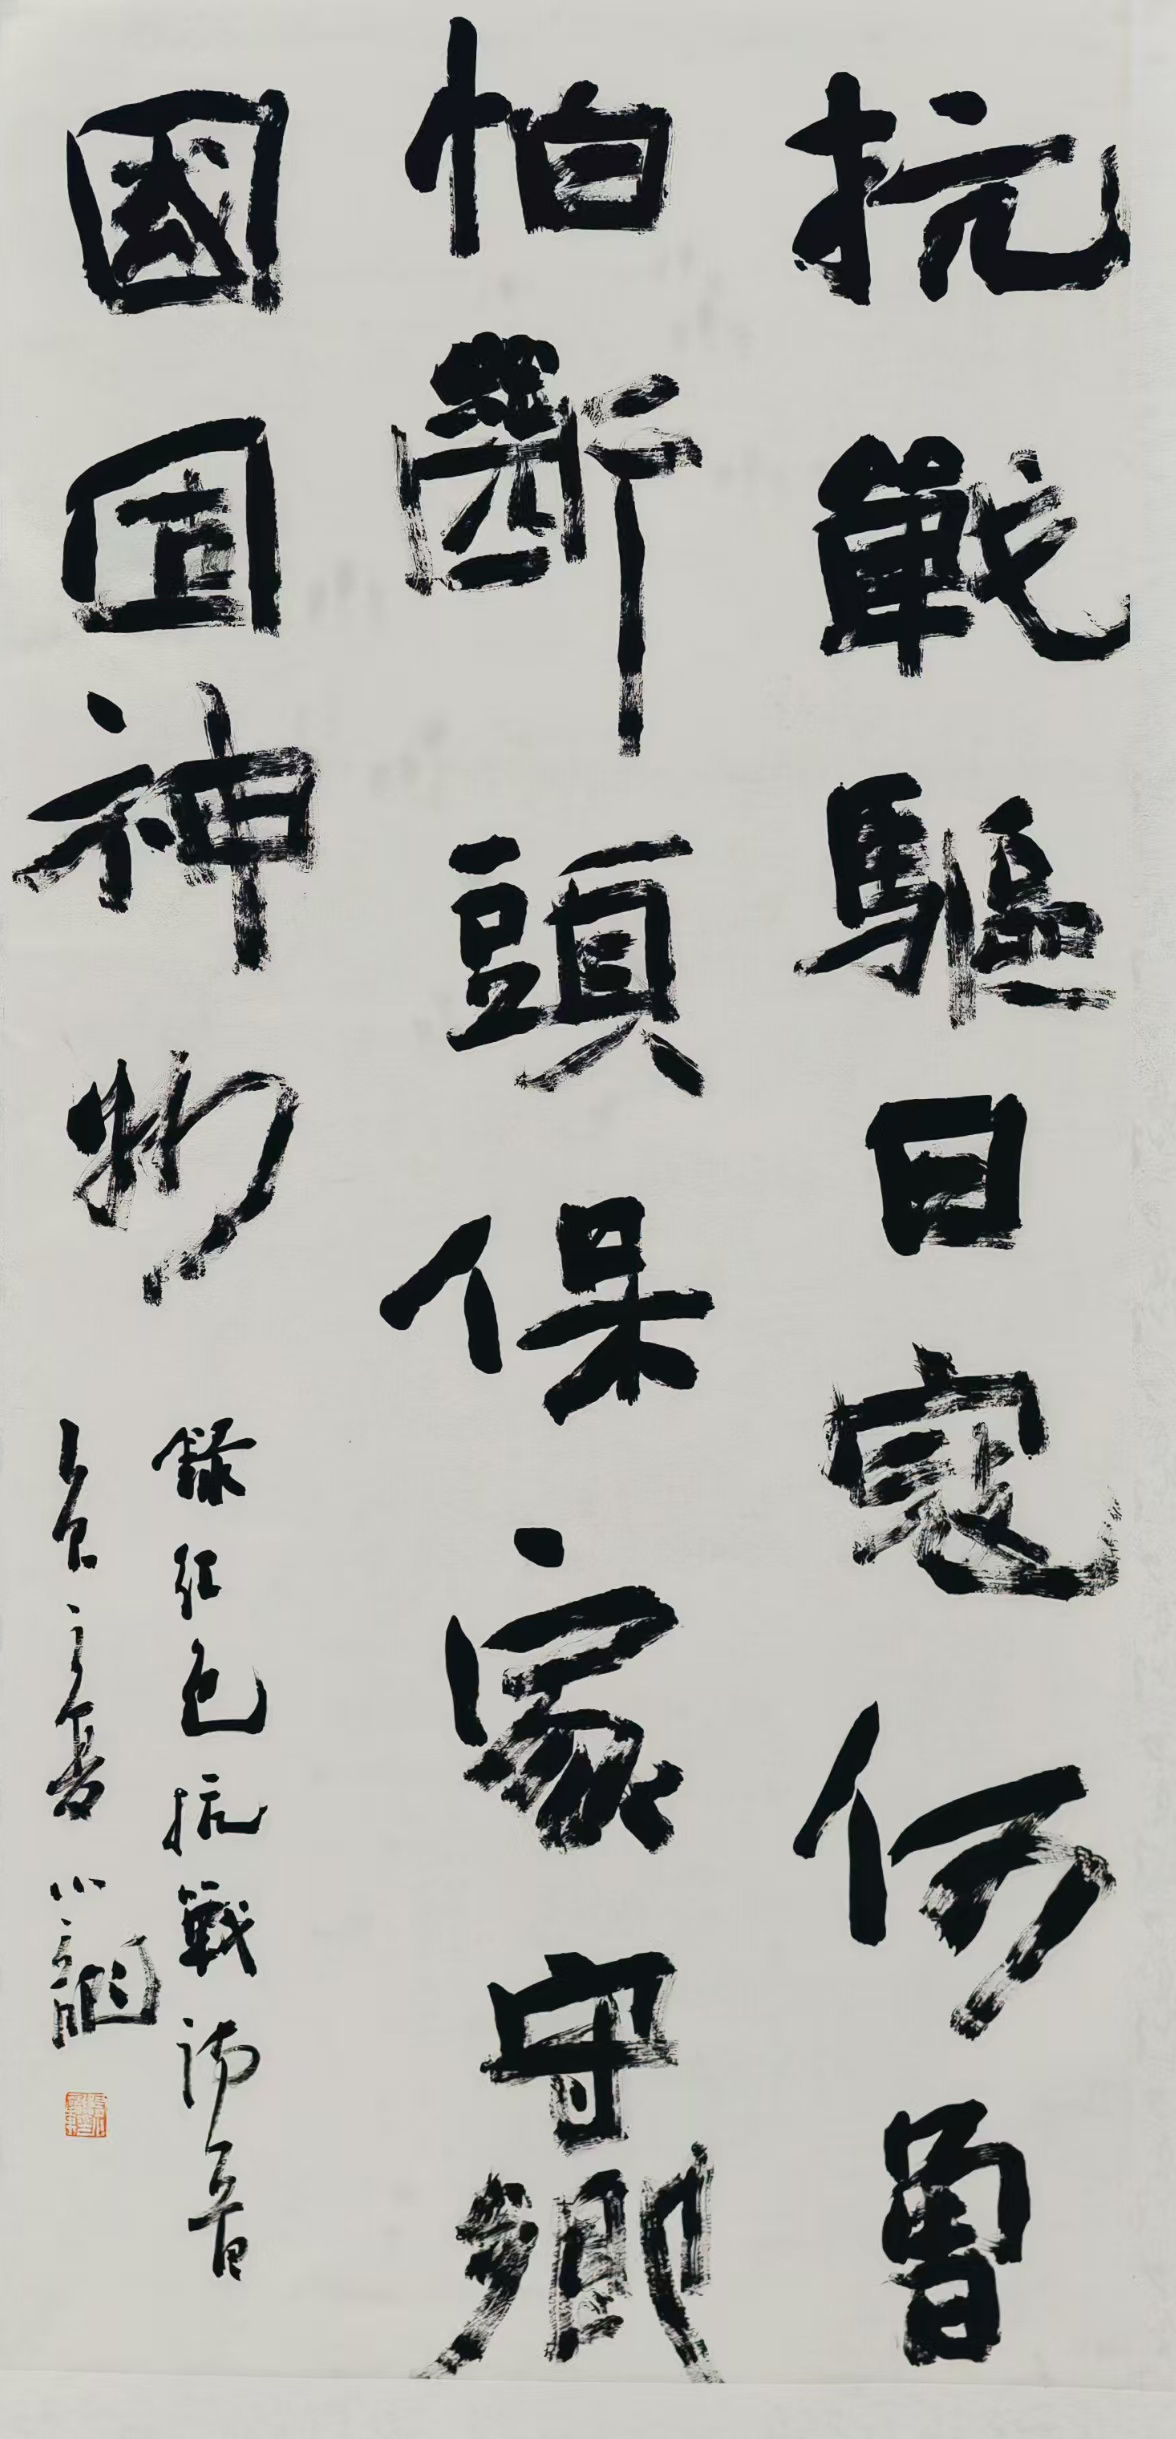 抗戰驅日寇何曾
怕斷頭保家守鄉
國固神物
錄紅色抗戰詩